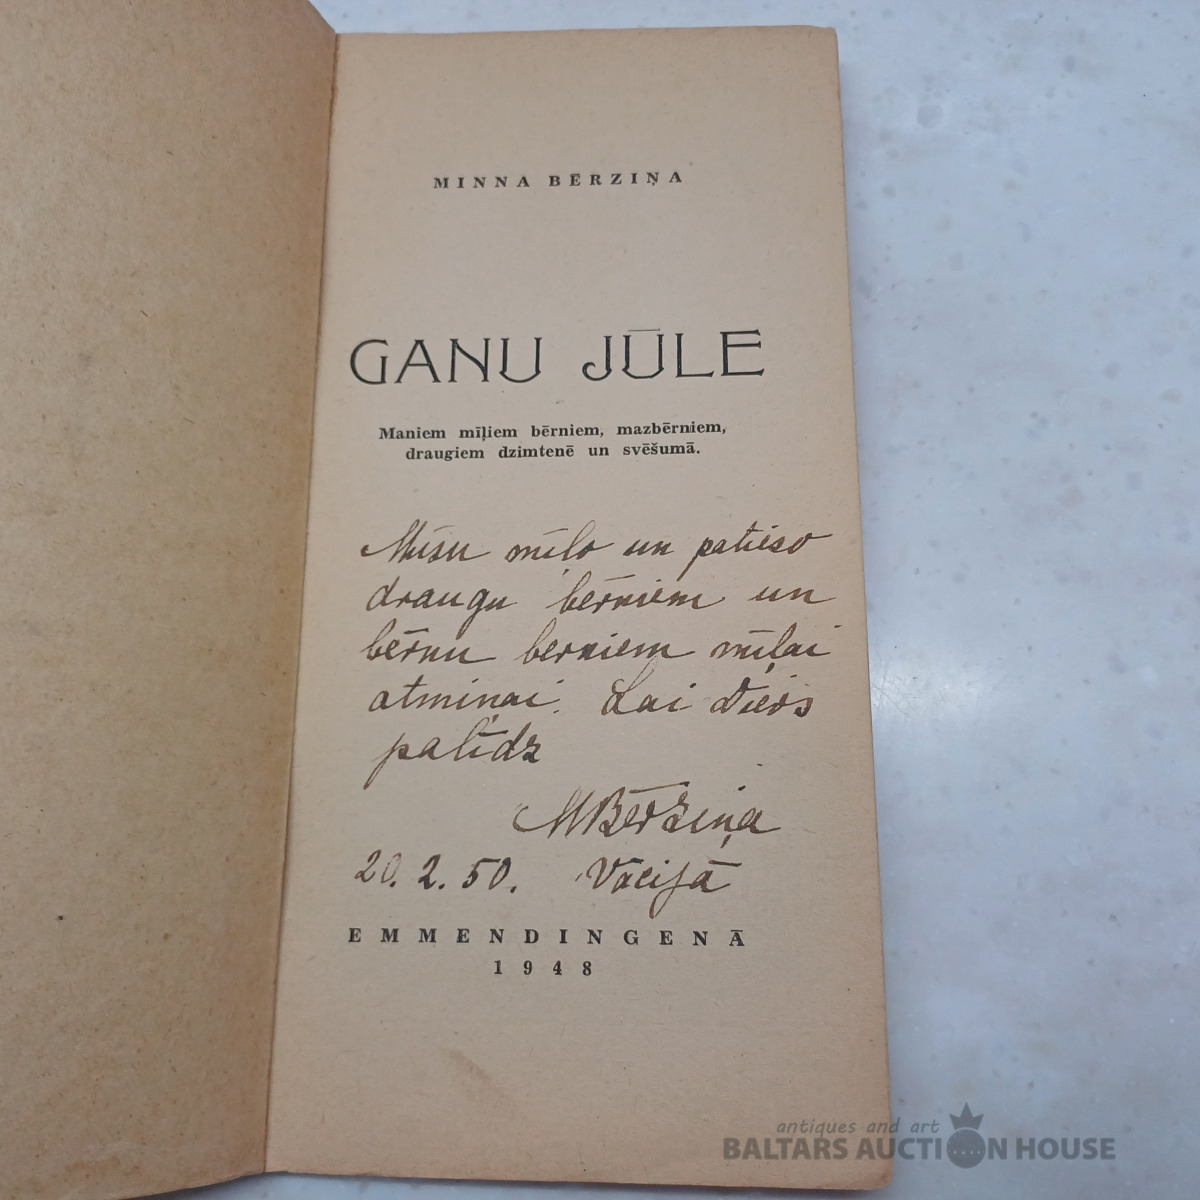 MINNA BĒRZIŅA
GANU JŪLE
Maniem mīļiem bērniem, mazbērniem,
draugiem dzimtenē un svēšumā.
Mūsu mīlo un patieso
draugu bērniem un
bērnu berniem mīļai
atmiņai. Lai Dievs
palīdz
MBērziņa
20. 2. 50. Vācijā
EMMENDINGENĀ
1948
antiques and art
BALTARS AUCTION HOUSE